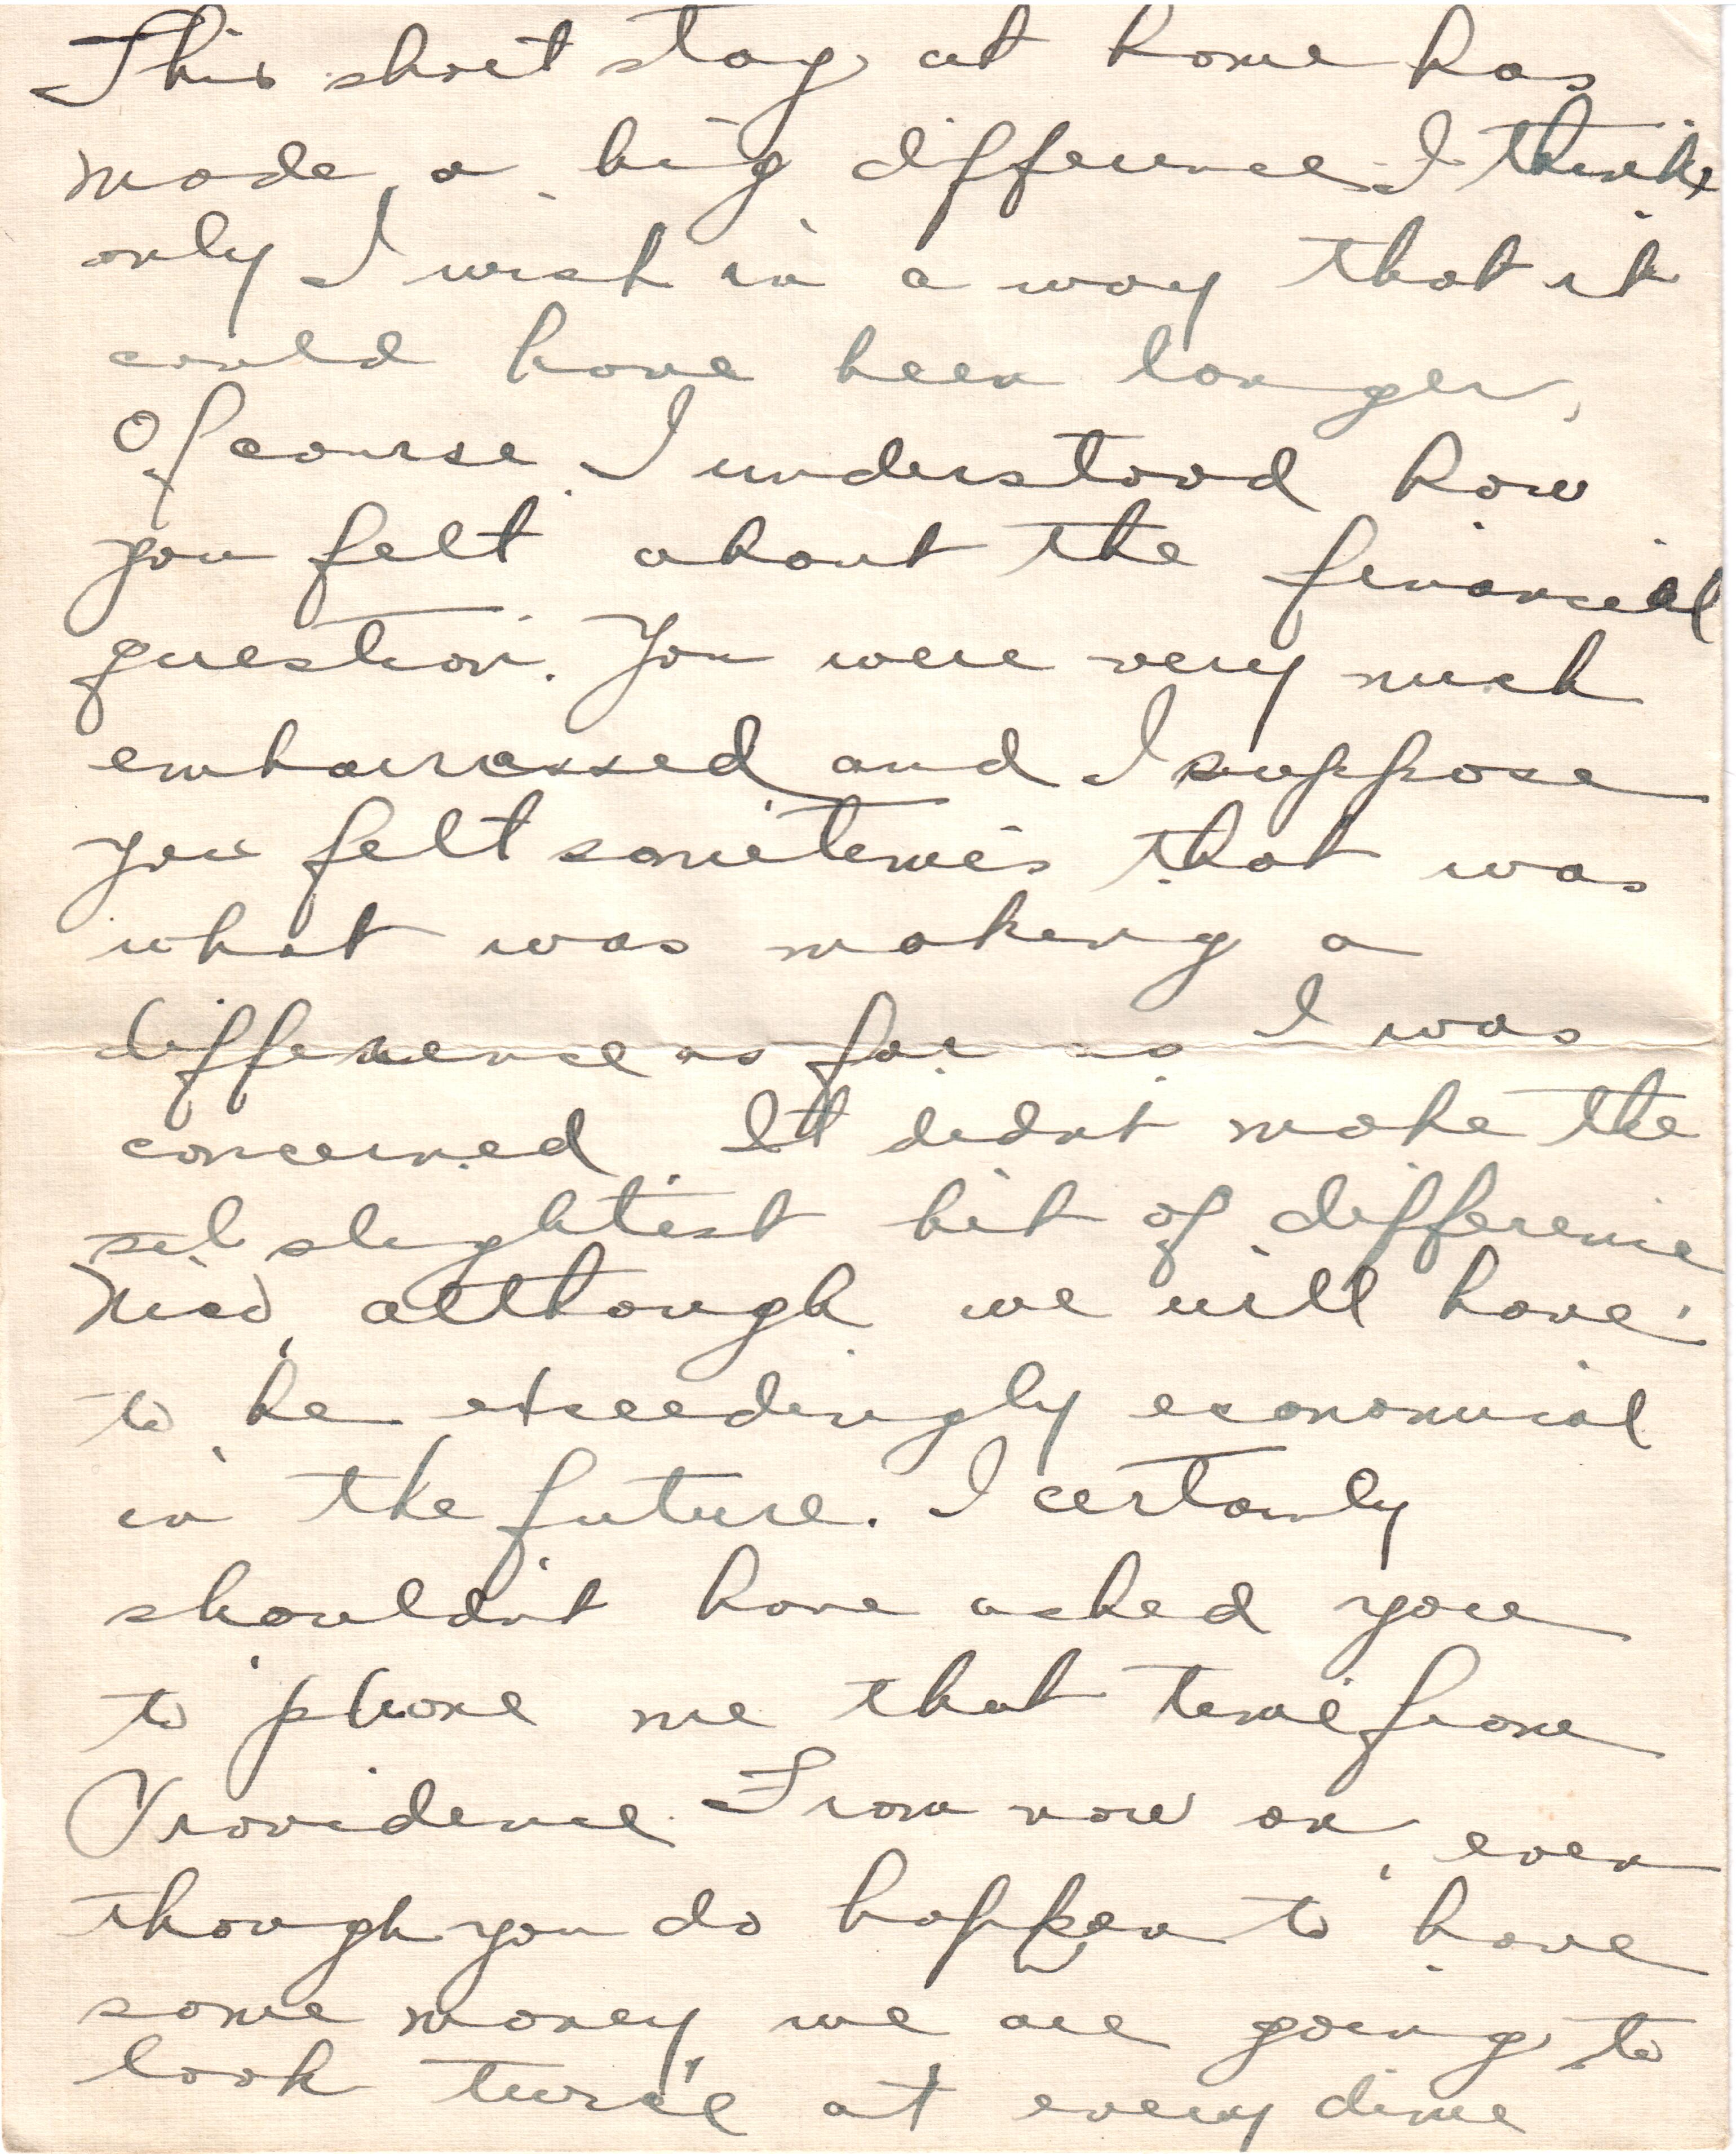 This short stay at home has
made a big difference I think
only I wish in a way that it
could have been longer.
Of course I understood how
you felt about the financial
question. You were very much
embarrassed and I suppose
you felt sometimes that was
what was making a
difference as far as I was
concerned. It didn't make the
slightest bit of difference
although we will have
to be exceedingly economical
in the future. I certainly
shouldn't have asked you
to phone me that time from
Providence. From now on, even
though you do happen to have
some money we are going to
look twice at every dime